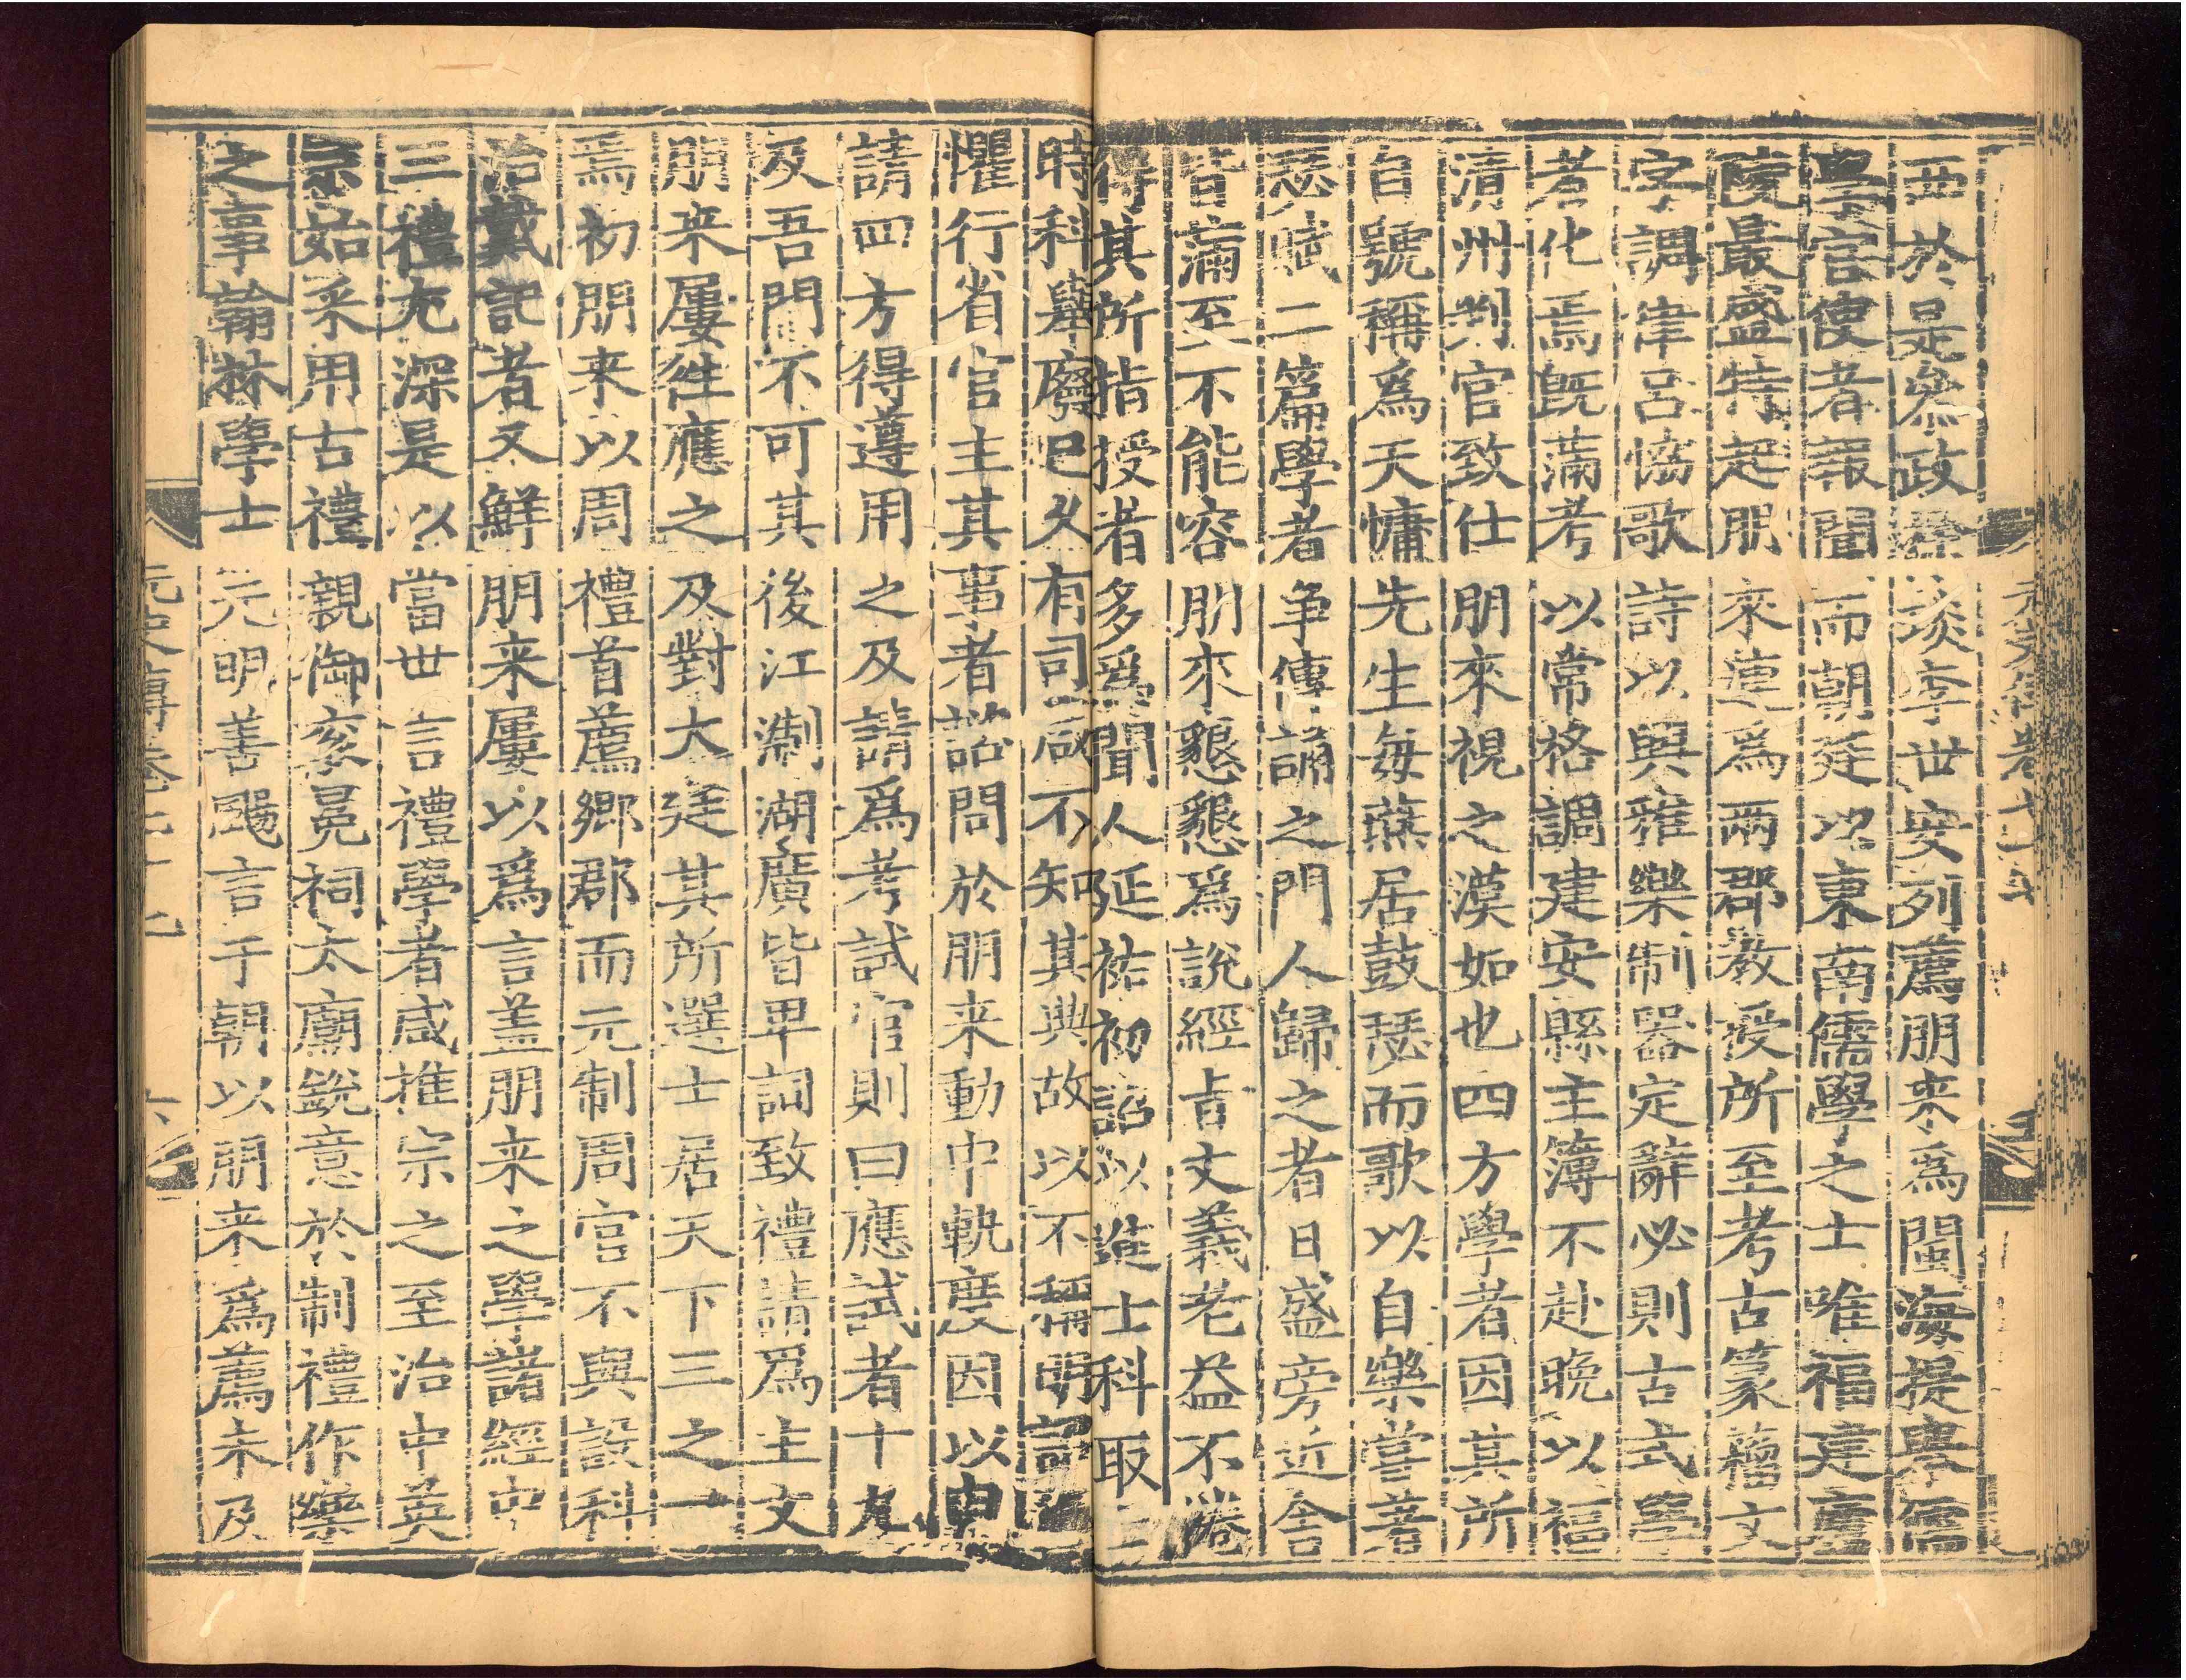 西於是參政
琰李世安列薦朋來爲閩海提擧儒
學官使者報聞而朝廷以東南儒學之士唯福建廬
陵最盛特起朋來連爲兩郡教授所至考古篆籀文
字調律呂協歌詩以興雅樂制器定辭必則古式學
者化焉旣滿考以常格調建安縣主簿不赴晚以福
清州判官致仕朋來視之漠如也四方學者因其所
自號稱爲天慵先生每燕居鼓瑟而歌以自樂嘗著
瑟賦二篇學者争傳誦之門人歸之者日盛旁近舍
皆滿至不能容朋來懇懇爲說經旨文義老益不倦
得其所指授者多爲聞人延祐初詔以進士科取士
時科舉廢已久有司咸不知其典故以不稱明詔
懼行省官主其事者諮問於朋来動中軌度因以申
請四方得遵用之及請爲考試官則曰應試者十九
及吾門不可其後江淛湖廣皆卑詞致禮請爲主文
朋来屢徃應之及對大廷其所選士居天下三之一
焉初朋来以周禮首薦鄉郡而元制周官不與設科
治戴記者又鮮朋来屢以爲言盖朋来之學諸經中
三禮尤深是以當世言禮學者咸推宗之至治中英
宗始采用古禮親御衮冕祠太廟銳意於制禮作樂
之事翰林學士元明善颺言于朝以朋来爲薦未及